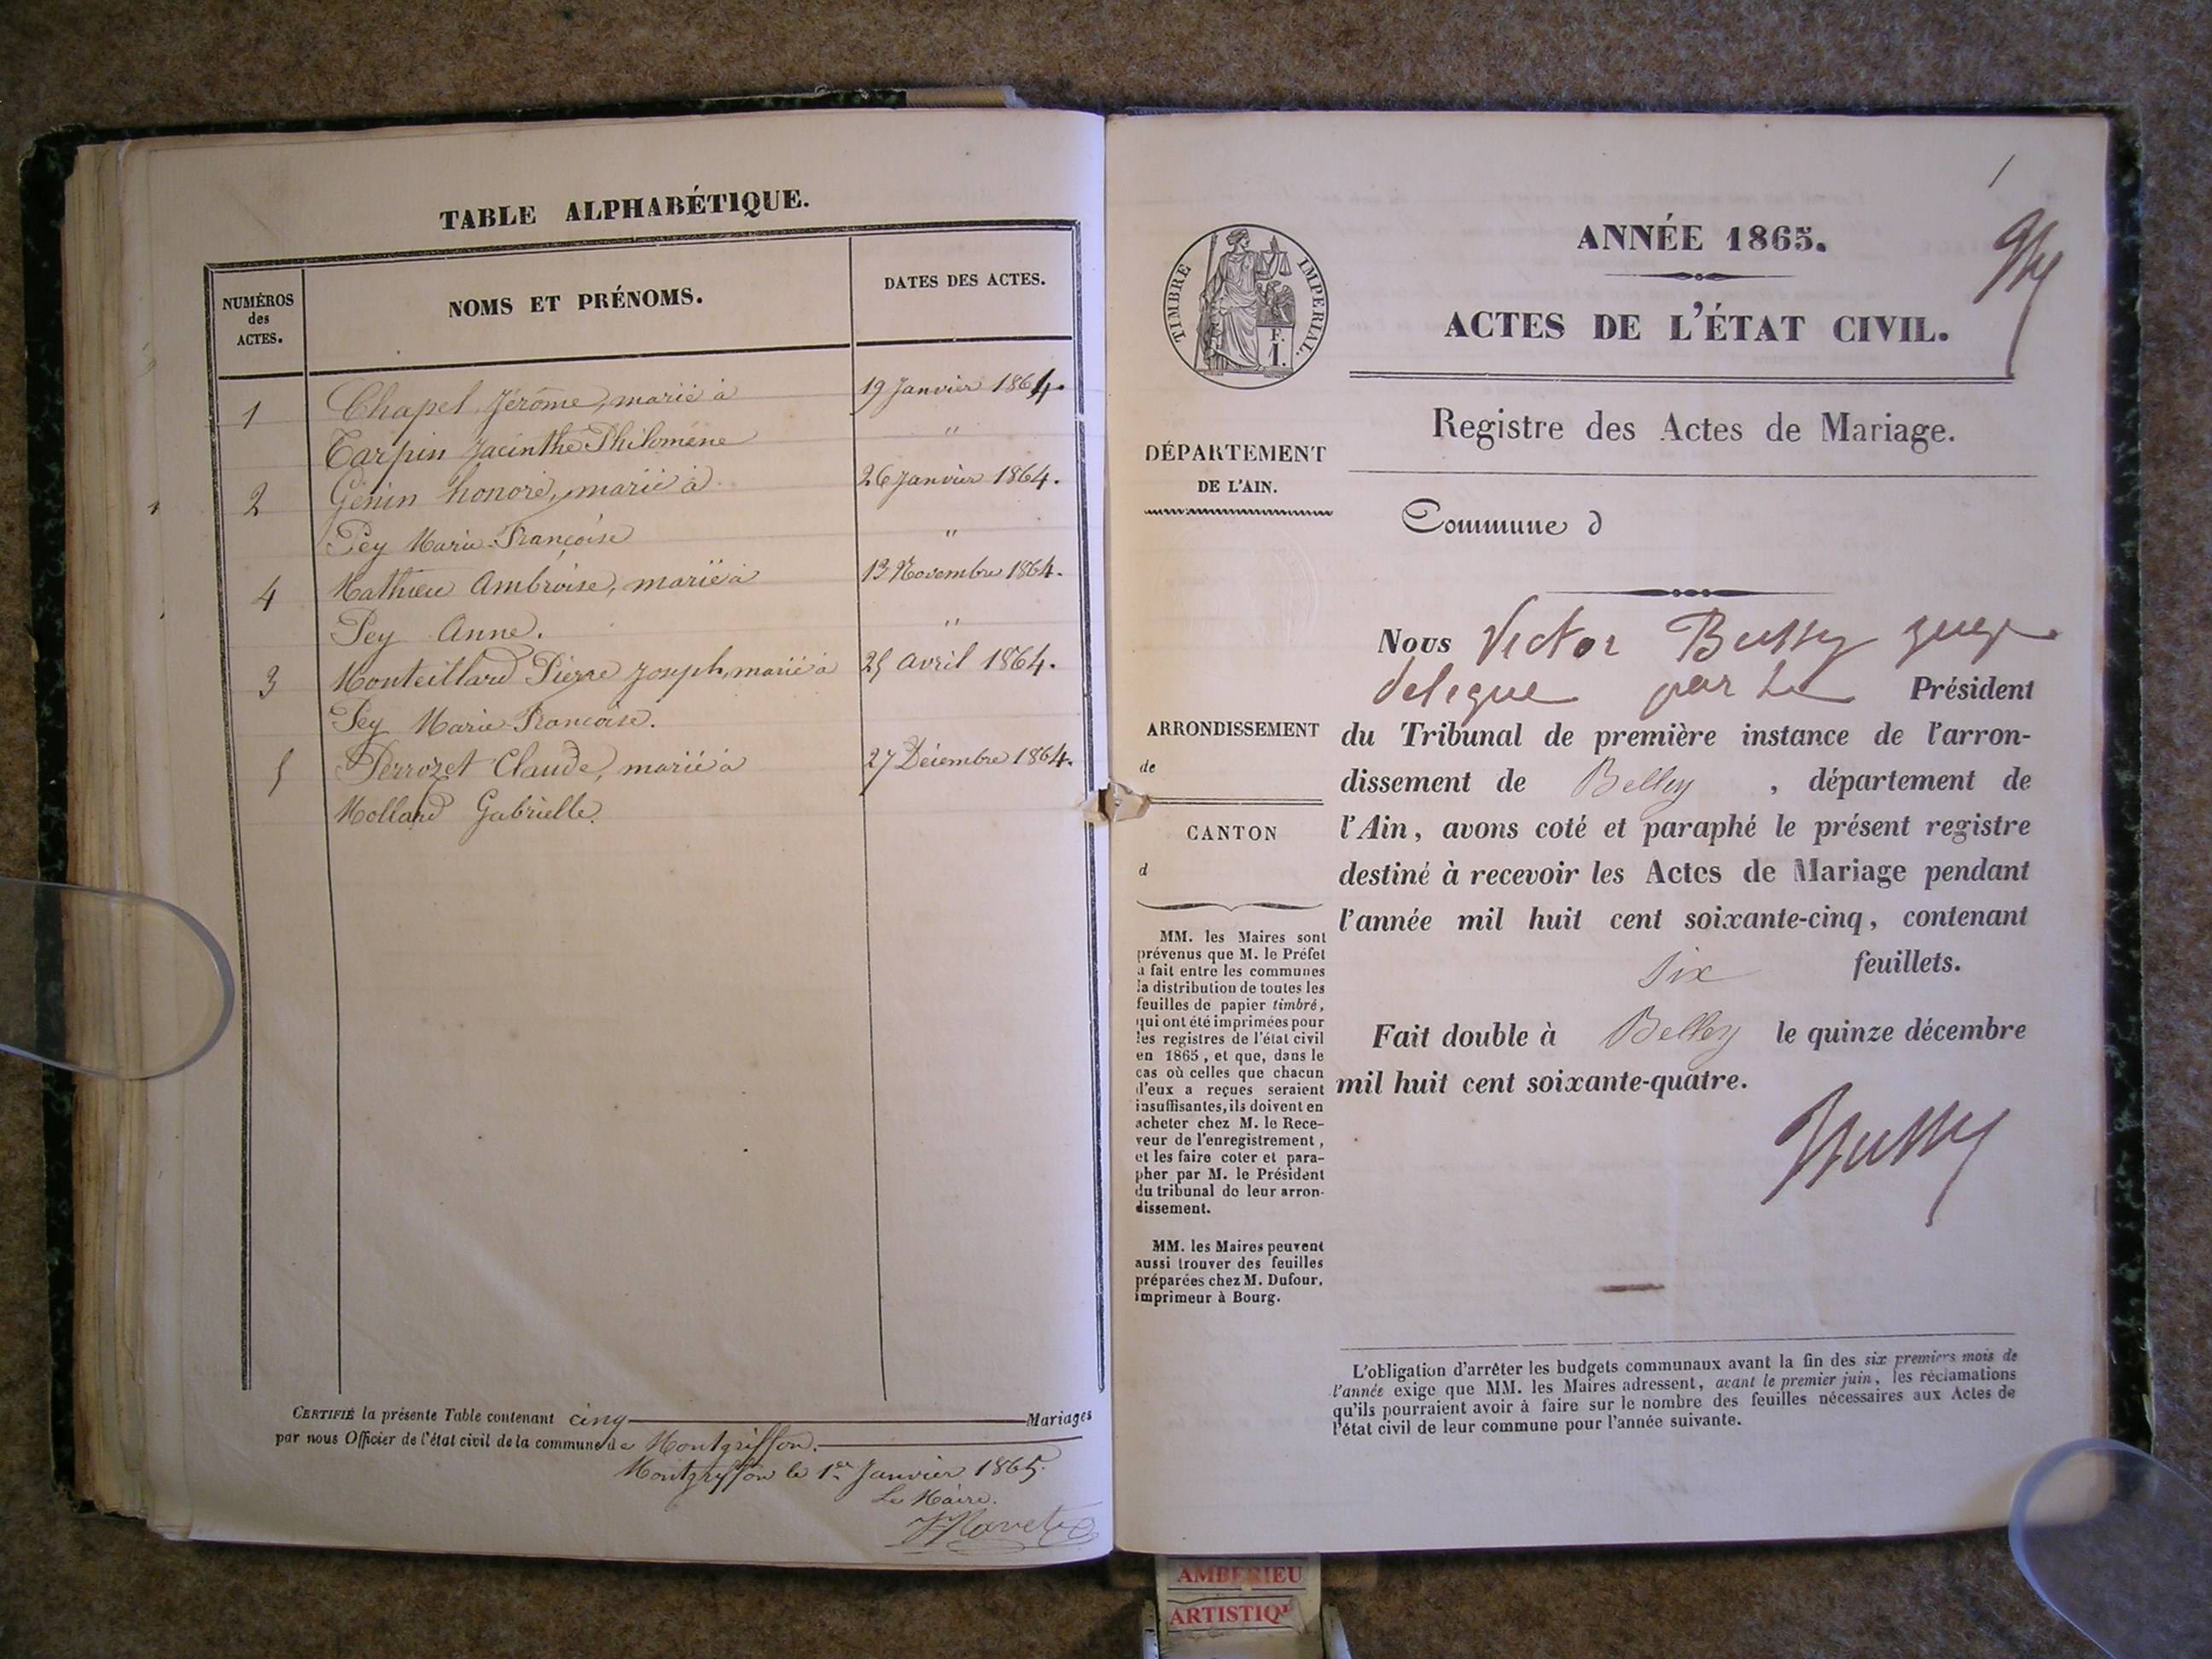 TABLE ALPHABÉTIQUE.
NUMÉROS
des
ACTES.
NOMS ET PRÉNOMS.
DATES DES ACTES.
1 Chapel Jérôme, marié à 19 Janvier 1864.
Tarpin Jacinthe Philomène "
2 Génin honoré, marié à 26 Janvier 1864.
Pey Marie-Françoise "
4 Mathieu Ambroise, marié à 13 Novembre 1864.
Pey Anne. "
3 Monteillard Pierre Joseph, marié à 25 Avril 1864.
Pey Marie-Françoise.
5 Perrozet Claude, marié à 27 Décembre 1864.
Molland Gabrielle.
CERTIFIÉ la présente Table contenant cinq Mariages
par nous Officier de l'état civil de la commune de Montgriffon.
Montgriffon le 1er Janvier 1865.
Le Maire.
1
ANNÉE 1865.
ACTES DE L'ÉTAT CIVIL.
TIMBRE IMPERIAL.
F.
1.
Registre des Actes de Mariage.
DÉPARTEMENT
DE L'AIN.
Commune d
ARRONDISSEMENT
de
CANTON
d
MM. les Maires sont
prévenus que M. le Préfet
a fait entre les communes
la distribution de toutes les
feuilles de papier timbré,
qui ont été imprimées pour
les registres de l'état civil
en 1865, et que, dans le
cas où celles que chacun
d'eux a reçues seraient
insuffisantes, ils doivent en
acheter chez M. le Rece-
veur de l'enregistrement,
et les faire coter et para-
pher par M. le Président
du tribunal de leur arron-
dissement.
MM. les Maires peuvent
aussi trouver des feuilles
préparées chez M. Dufour,
imprimeur à Bourg.
Nous Victor Bussy juge
delegue par le Président
du Tribunal de première instance de l'arron-
dissement de Belley, département de
l'Ain, avons coté et paraphé le présent registre
destiné à recevoir les Actes de Mariage pendant
l'année mil huit cent soixante-cinq, contenant
six feuillets.
Fait double à Belley le quinze décembre
mil huit cent soixante-quatre.
Bussy
L'obligation d'arrêter les budgets communaux avant la fin des six premiers mois de
l'année exige que MM. les Maires adressent, avant le premier juin, les réclamations
qu'ils pourraient avoir à faire sur le nombre des feuilles nécessaires aux Actes de
l'état civil de leur commune pour l'année suivante.
AMBERIEU
ARTISTIQ